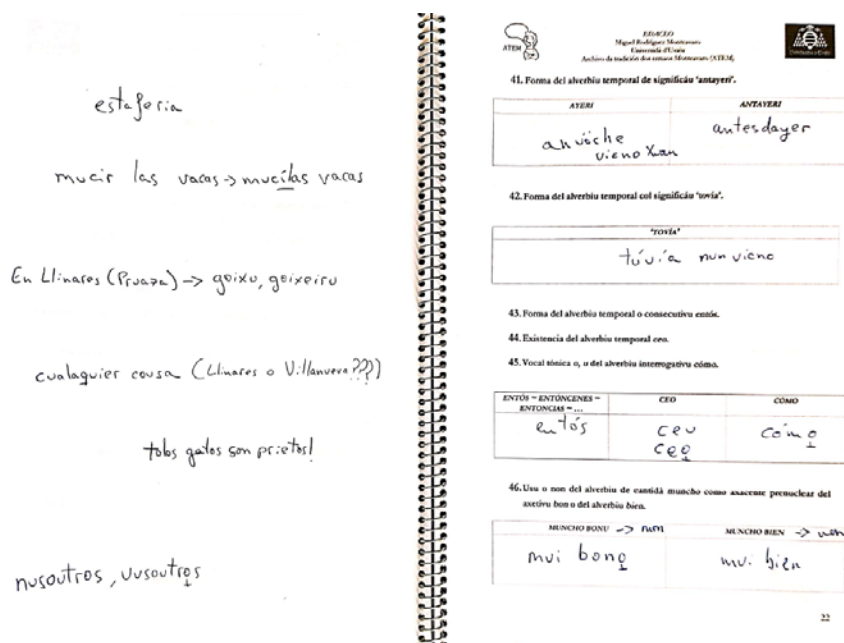 estaferia
mucir las vacas -> mucilas vacas
En Llinares (Pruaza) -> goixu, goixeiru
cualaquier cousa (Llinares o Villanueva???)
tolos gatos son prietos!
nusoutros, vusoutros
ATEM
Miguel Rodríguez Monteavaro
Universidá d'Uviéu
41. Forma del alverbiu temporal de significáu 'antayeri'.
AYERI ANTAYERI
anuöche antesdayer
vieno Xuan
42. Forma del alverbiu temporal col significáu 'tovía'.
'TOVÍA'
túvía nun vieno
43. Forma del alverbiu temporal o consecutivu entós.
44. Existencia del alverbiu temporal ceo.
45. Vocal tónica o, u del alverbiu interrogativu cómo.
ENTÓS ~ ENTÓNCENES ~ CEO CÓMO
ENTONCIAS ~ ...
entós ceu cómo
ceo
46. Usu o non del alverbiu de cantidá muncho como axacente prenuclear del
axetivu bon o del alverbiu bien.
MUNCHO BONU -> non MUNCHO BIEN -> non
mui bono mui bien
22